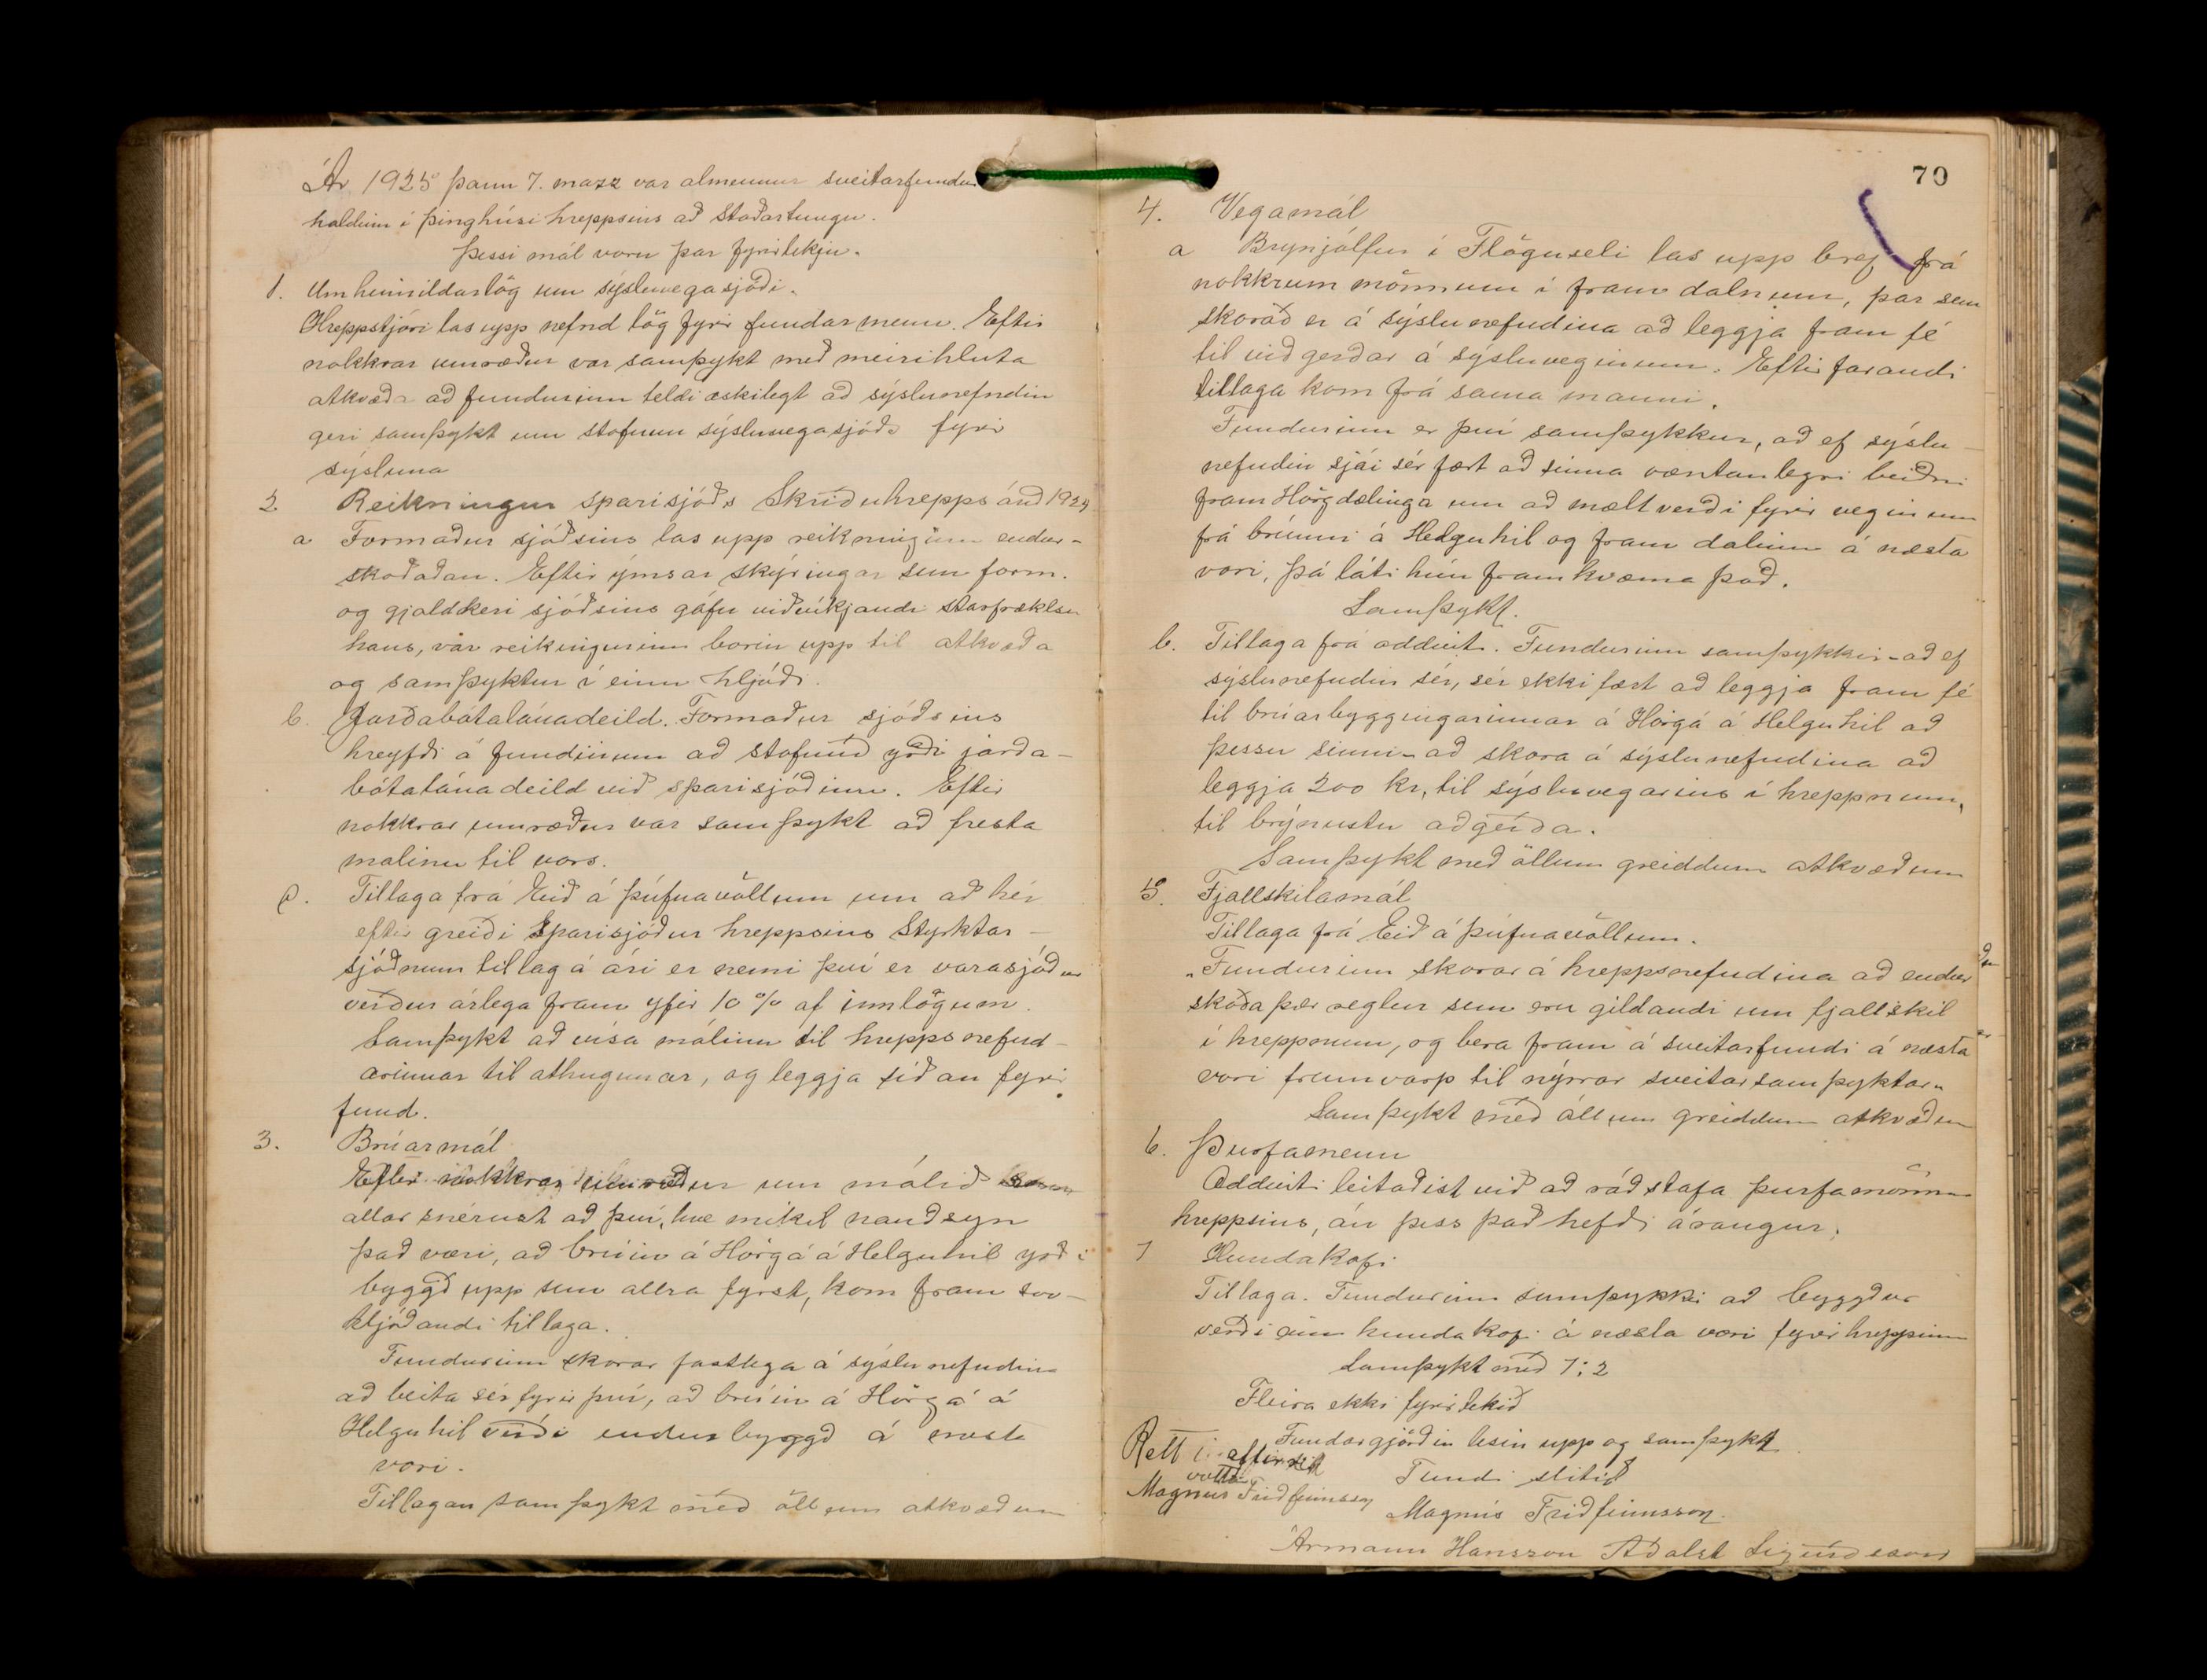 Ár 1925 þann 7. marz var almennur sveitarfundur
haldinn í þinghúsi hreppsins að Staðartungu.
Þessi mál voru þar fyrirtekju.
1. Um heimildarlög um sýsluvegasjóði.
Hreppstjóri las upp nefnd lög fyrir fundarmenn. Eftir
nokkrar umræður var samþykt með meirihluta
atkvæða að fundurinn teldi æskilegt að sýslunefndin
geri samþykt um stofnun sýsluvegasjóðs fyrir
sýsluna
2. Reikningur sparisjóðs Skriðuhrepps árið 1924
a Formaður sjóðsins las upp reikninginn endur-
skoðaðan. Eftir ýmsar skýringar sem form.
og gjaldkeri sjóðsins gáfu viðvíkjandi starfrækslu
hans, var reikningurinn borin upp til atkvæða
og samþyktur í einu hljóði.
b. Jarðabótalánadeild. Formaður sjóðsins
hreyfði á fundinum að stofnuð yrði jarða-
bótalánadeild við sparisjóðinn. Eftir
nokkrar umræður var samþykt að fresta
malinu til vors.
c. Tillaga frá Eið á Þúfnavöllum um að hér
eftir greiði Sparisjóður hreppsins Styrktar-
sjóðnum tillag á ári er nemi því er varasjóður
verður árlega fram yfir 10% af innlögum.
Samþykt að vísa málinu til hreppsnefnd-
arinnar til athugunar, og leggja síðan fyrir
fund.
3. Brúarmál
Eftir nokkrar umræður um málið sem
allar snérust að því, hve mikil nauðsyn
það væri, að brúin á Hörgá á Helguhil yrði
byggð upp sem allra fyrst, kom fram svo-
hljóðandi tillaga.
Fundurinn skorar fastlega á sýslunefndina
að beita sér fyrir því, að brúin á Hörgá á
Helguhil verði endurbyggð á næsta
vori.
Tillagan samþykt með öllum atkvæðum
70
4. Vegamál
a Brynjólfur í Flöguseli las upp bref frá
nokkrum mönnum í fram dalnum, þar sem
skorað er á sýslunefndina að leggja fram fé
til viðgerðar á sýsluveginum. Eftirfarandi
tillaga kom frá sama manni.
Fundurinn er því samþykkur, að ef sýslu-
nefndin sjái sér fært að sinna væntanlegri beiðni
fram Hörgdælinga um að mælt verði fyrir veginum
frá brúnni á Helguhil og fram dalinn á næsta
vori, þá láti hún framkvæma það.
Samþykt.
b. Tillaga frá oddvit. Fundurinn samþykkir - að ef
sýslunefndin sér, sér ekki fært að leggja fram fé
til brúarbyggingarinnar á Hörgá á Helguhil að
þessu sinni - að skora á sýslunefndina að
leggja 200 kr, til sýsluvegarins í hreppnum,
til brýnustu aðgerða.
Samþykt með öllum greiddum atkvæðum
5. Fjallskilamál
Tillaga frá Eið á Þúfnavöllum.
"Fundurinn skorar á hreppsnefndina að endur
skoða þær reglur sem eru gildandi um fjallskil
í hreppnum, og bera fram á sveitarfundi á næsta
vori frumvarp til nýrrar sveitarsamþyktar"
Samþykt með öllum greiddum atkvæðum
6. Þurfamenn
Oddviti leitaðist við að ráðstafa þurfamönnum
hreppsins, án þess það hefði árangur.
7 Hundakofi
Tillaga. Fundurinn samþykki að byggður
verði einn hundakofi á næsta vori fyrir hreppinn
Samþykt með 7:2
Fleira ekki fyrirtekið
Fundargjörðin lesin upp og samþykt.
Rett
Fundi slitið
vottar
Magnús Friðfinnsson
Magnús Friðfinnsson.
Ármann Hansson Aðalst Sigurðsson